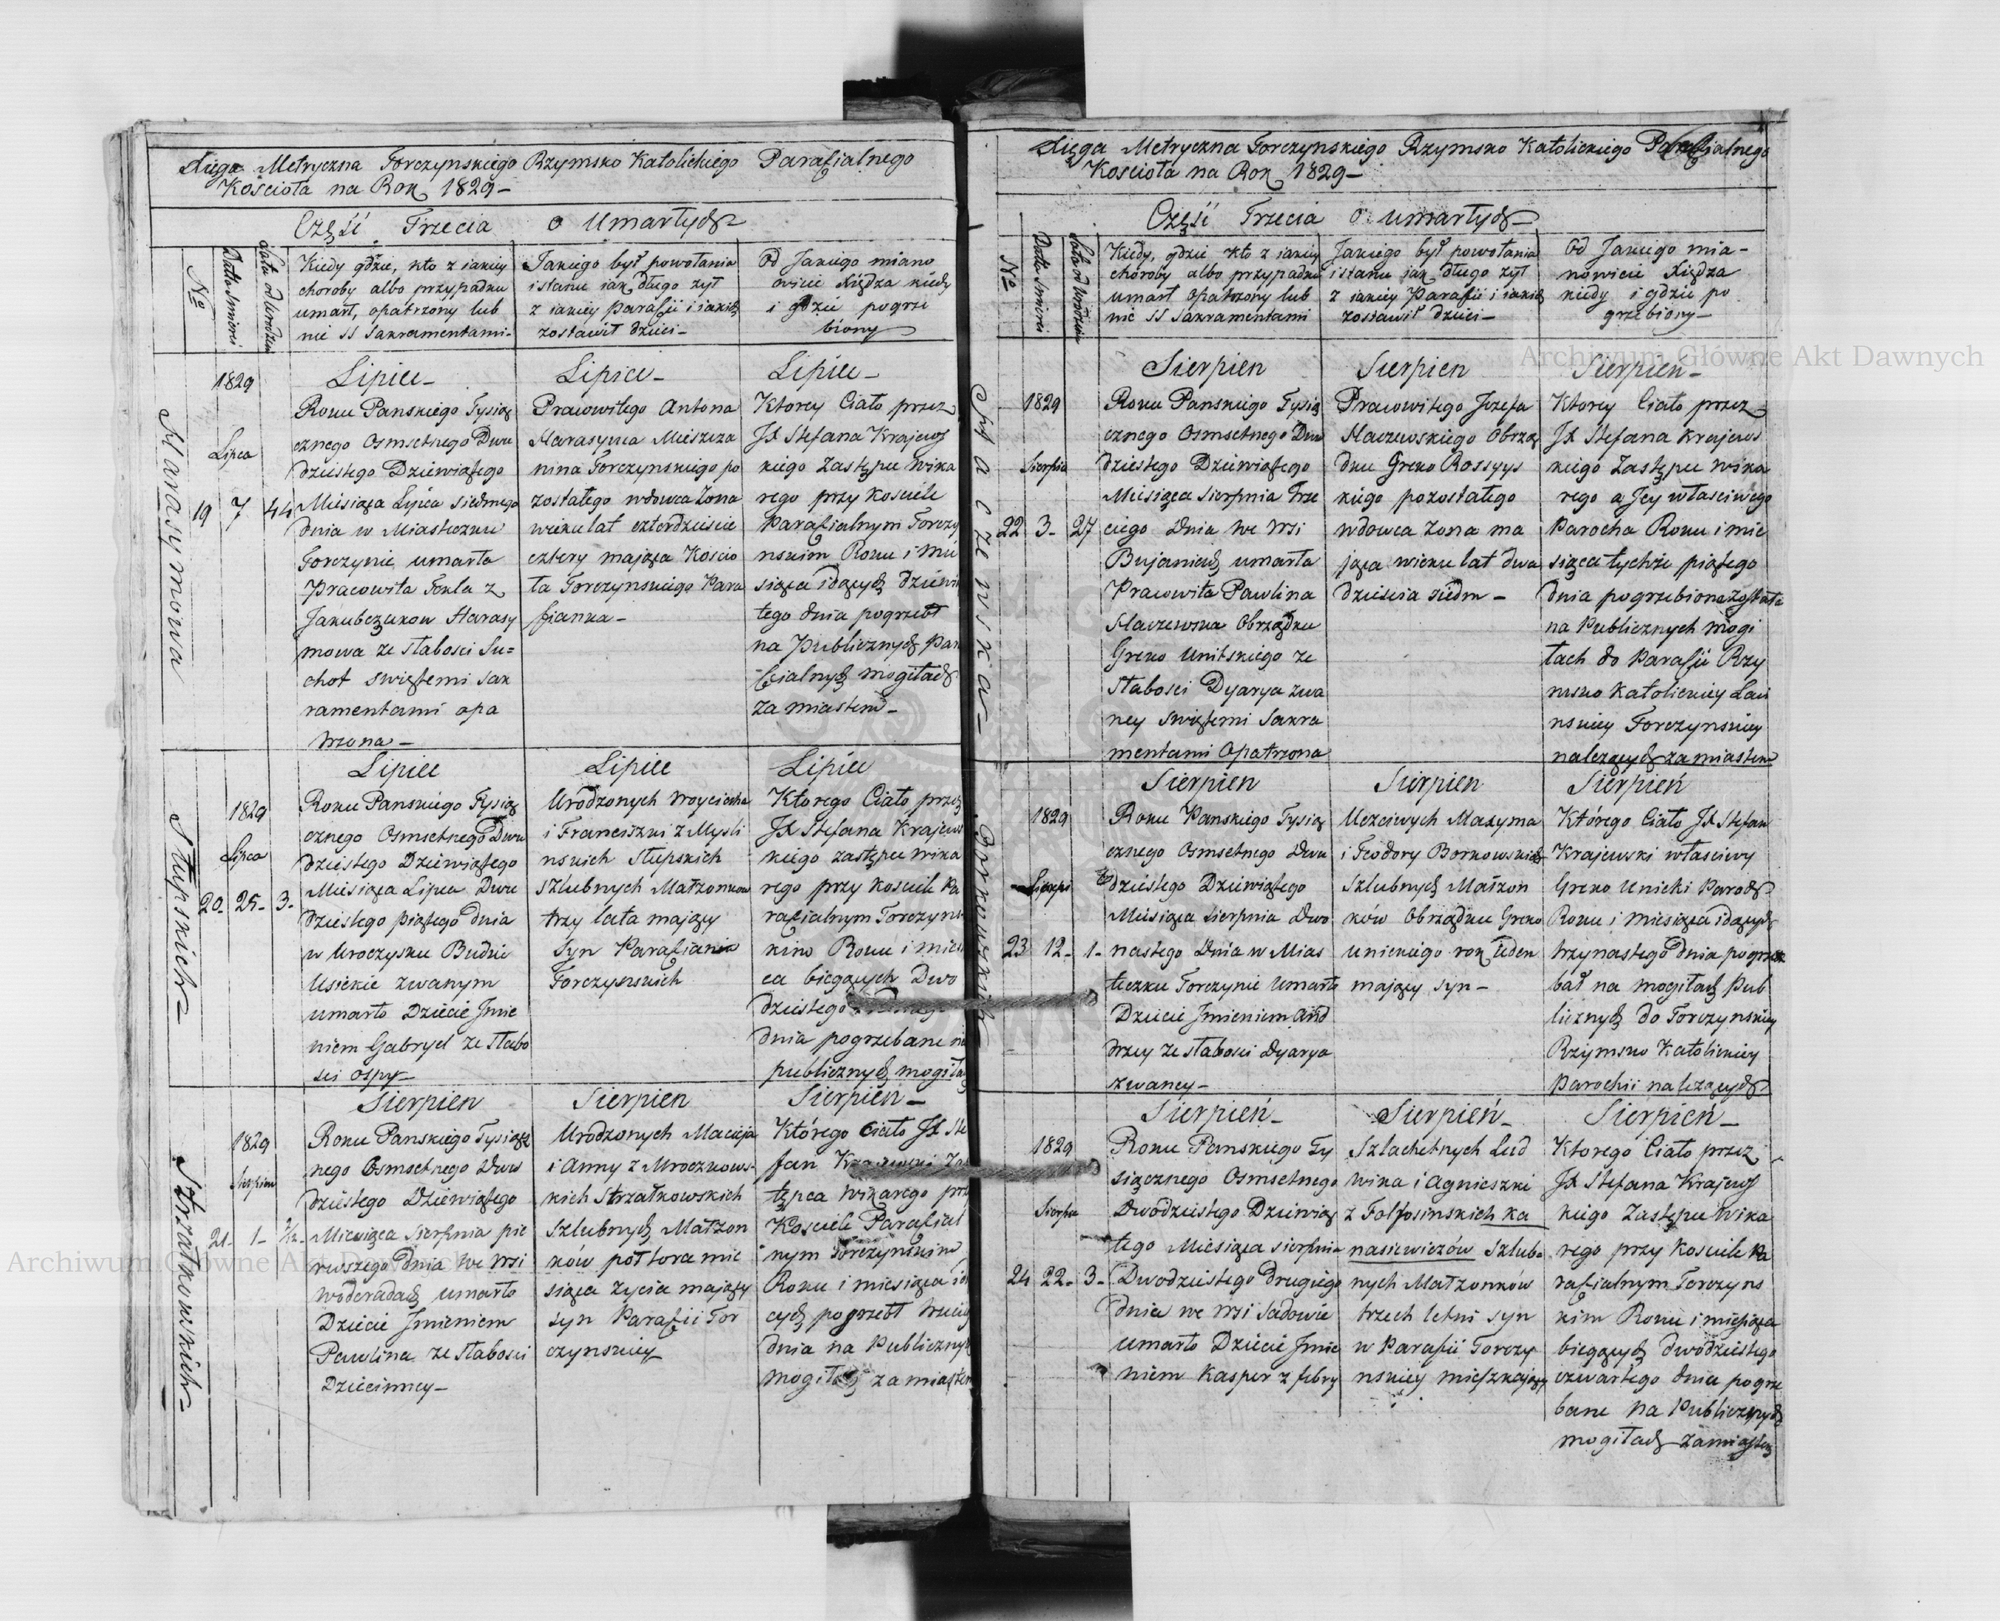 Xięga Metryczna Torczynskiego Rzymsko Katolickiego Parafialnego
Koscioła na Rok 1829 –
Część Trzecia o Umarłych
No
Data smierci
Lata od urodzin
Kiedy gdzie, kto z iakiey
choroby albo przypadku
umarł, opatrzony lub
nie SS Sakramentami –
Jakiego był powołania
i stanu iak długo żył
z iakiey Parafii i iakich
zostawił dzieci –
Od Jakiego miano
wicie Xiędza kiedy
i gdzie pogrze
biony
Harasymowa
1829
Lipca
19 7 44
Lipiec –
Roku Panskiego Tysiąc
cznego Osmsetnego Dwu
dziestego Dziewiątego
Miesiąca Lipca siedmego
dnia w Miasteczku
Torczynie umarła
Pracowita Tekla z
Jakubczukow Harasy
mowa ze słabosci Su=
chot swiętemi Sak
ramentami opa
trzona –
Lipiec –
Pracowitego Antona
Harasyma Mieszcza
nina Torczynskiego po
zostałego wdowca Żona
wieku lat czterdziescie
cztery maiąca Koscio
ła Torczynskiego Para
fianka –
Lipiec –
Ktorey Ciało przez
JX Stefana Krajews
kiego Zastępce Wika
rego przy Kosciele
Parafialnym Torczy
nskim Roku i Mie
siąca idących dziewią
tego dnia pogrzebł
na Publicznych Para
fialnych mogiłach
za miastem –
Słupskich –
1829
Lipca
20 – 25 – 3 –
Lipiec
Roku Panskiego Tysiąc
cznego Osmsetnego Dwu
dziestego Dziewiątego
Miesiąca Lipca Dwu
dziestego piątego dnia
w Uroczysku Budzie
Usickie zwanym
umarło Dziecie Jmie
niem Gabryel ze słabo
sci ospy –
Lipiec
Urodzonych Woyciecha
i Franciszki z Mysli
nskich Słupskich
Szlubnych Małżonkow
trzy lata maiący
Syn Parafianin
Torczynskich
Lipiec
Którego Ciało przez
JX Stefana Krajews
kiego zastępce Wika
rego przy Kosciele Pa
rafialnym Torczyns
kim Roku i miesi
ca bieguących Dwu
dziestego
dnia pogrzebane na
publicznych mogiłach
Strzałkowskich –
1829
Sierpnia
21 – 1 – 1/12 –
Sierpien
Roku Panskiego Tysiącz
nego Osmsetnego Dwu
dziestego Dziewiątego
Miesiąca Sierpnia pie
rwszego Dnia we Wsi
Woderadach umarło
Dziecie Jmieniem
Pawlina ze słabosci
Dziecinney –
Sierpien
Urodzonych Macieja
i Anny z Mroczkows
kich Strzałkowskich
Szlubnych Małżon
ków półtora mie
siąca życia maiący
syn Parafii Tor
czynskiey
Sierpien –
Którego ciało JX Ste
fan Krajewski Zas
tępca Wikarego przy
Kosciele Parafial
nym Torczynskim
Roku i miesiąca idą
cych pogrzebł trzeciego
dnia na Publicznych
mogiłach za miastem
Xięga Metryczna Torczynskiego Rzymsko Katolickiego Parafialnego
Kosciola na Rok 1829 –
Część Trzecia o umarłych
No
Data smierci
Lata od Urodzin
Kiedy, gdzie kto z iakiey
choroby albo przypadku
umarł Opatrzony lub
nie SS Sakramentami
Jakiego był powołania
i stanu jak długo żył
z iakiey Parafii i iakich
zostawił dzieci –
Od Jakiego mia –
nowicie Xiędza
kiedy i gdzie po
grzebiony –
Haczewska –
1829
Sierpnia
22 3 – 27
Sierpien
Roku Panskiego Tysią
cznego Osmsetnego Dwu
dziestego Dziewiątego
Miesiąca Sierpnia Trze
ciego Dnia we Wsi
Bujanich umarła
Pracowita Pawlina
Haczewska Obrządku
Greko Unitskiego ze
słabosci Dyarya zwa
ney Swiętemi Sakra
mentami Opatrzona
Sierpien
Pracowitego Jozefa
Haczewskiego Obrzą
dku Greko Rossyys
kiego pozostałego
wdowca zona ma
jąca wieku lat dwa
dziescia siedm –
Sierpien –
Ktorey Ciało przez
JX Stefana Krajews
kiego Zastępce Wika
rego a Jey własciwego
Parocha Roku i mie
siąca tychże piątego
dnia pogrzebiona została
na Publicznych mogi
łach do Parafii Rzy
msko Katolickiey Łaci
nskiey Torczynskiey
należących za miastem
Borkowskich
1829
Sierpnia
23 12 – 1 –
Sierpien
Roku Panskiego Tysiąc
cznego Osmsetnego Dwu
dziestego Dziewiątego
Miesiąca Sierpnia Dwu
nastego Dnia w Mias
teczku Torczynie Umarło
Dziecie Jmieniem And
drzey ze słabosci Dyarya
zwaney –
Sierpien
Uczciwych Maxyma
i Teodory Borkowskich
Szlubnych Małżon
ków Obrządku Greko
unickiego rok ieden
maiący syn –
Sierpień
Którego Ciało JX Stefan
Krajewski własciwy
Greko Unicki Paroch
Roku i miesiąca idących
trzynastego dnia pogrze
bał na mogiłach Pub
licznych do Torczynskiey
Rzymsko Katolickiey
Parochii należących
1829
Sierpnia
24 22 – 3 –
Sierpień –
Roku Panskiego Ty
siącznego Osmsetnego
Dwódziestego Dziewią
tego Miesiąca Sierpnia
Dwodziestego drugiego
dnia we Wsi Sadowie
umarło Dziecie Jmie
niem Kasper z febry
Sierpień –
Szlachetnych Lud
wika i Agnieszki
z Folfosinskich Ka
nasiewiczów Szlub
nych Małżonków
trzech letni syn
w Parafii Torczy
nskiey mieszkający
Sierpień –
Ktorego Ciało przez
JX Stefana Krajews
kiego Zastępce Wika
rego przy Kosciele Pa
rafialnym Torczyns
kim Roku i miesiąca
biegących dwódziestego
czwartego dnia pogrze
bane na Publicznych
mogiłach za miastem
Archiwum Główne Akt Dawnych
Archiwum Główne Akt Dawnych